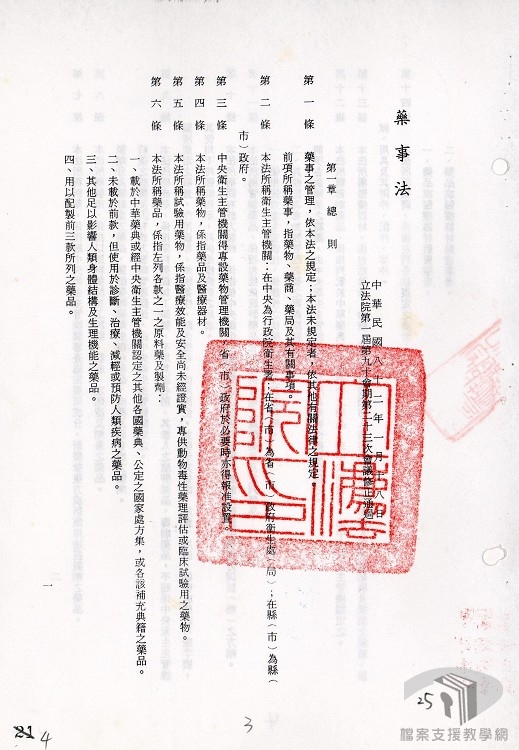 藥事法
中華民國八十二年一月十八日
立法院第一屆第九十會期第二十三次會議修正通過
第一章 總則
第一條 藥事之管理，依本法之規定；本法未規定者，依其他有關法律之規定。
前項所稱藥事，指藥物、藥商、藥局及其有關事項。
第二條 本法所稱衛生主管機關：在中央為行政院衛生署；在省（市）為省（市）政府衛生處（局）；在縣（市）為縣（
市）政府。
第三條 中央衛生主管機關得專設藥物管理機關，省（市）政府於必要時亦得報准設置。
第四條 本法所稱藥物，係指藥品及醫療器材。
第五條 本法所稱試驗用藥物，係指醫療效能及安全尚未經證實，專供動物毒性藥理評估或臨床試驗用之藥物。
第六條 本法所稱藥品，係指左列各款之一之原料藥及製劑：
一、載於中華藥典或經中央衛生主管機關認定之其他各國藥典、公定之國家處方集，或各該補充典籍之藥品。
二、未載於前款，但使用於診斷、治療、減輕或預防人類疾病之藥品。
三、其他足以影響人類身體結構及生理機能之藥品。
四、用以配製前三款所列之藥品。
一
立法院印
25
3
21 4
檔案支援教學網